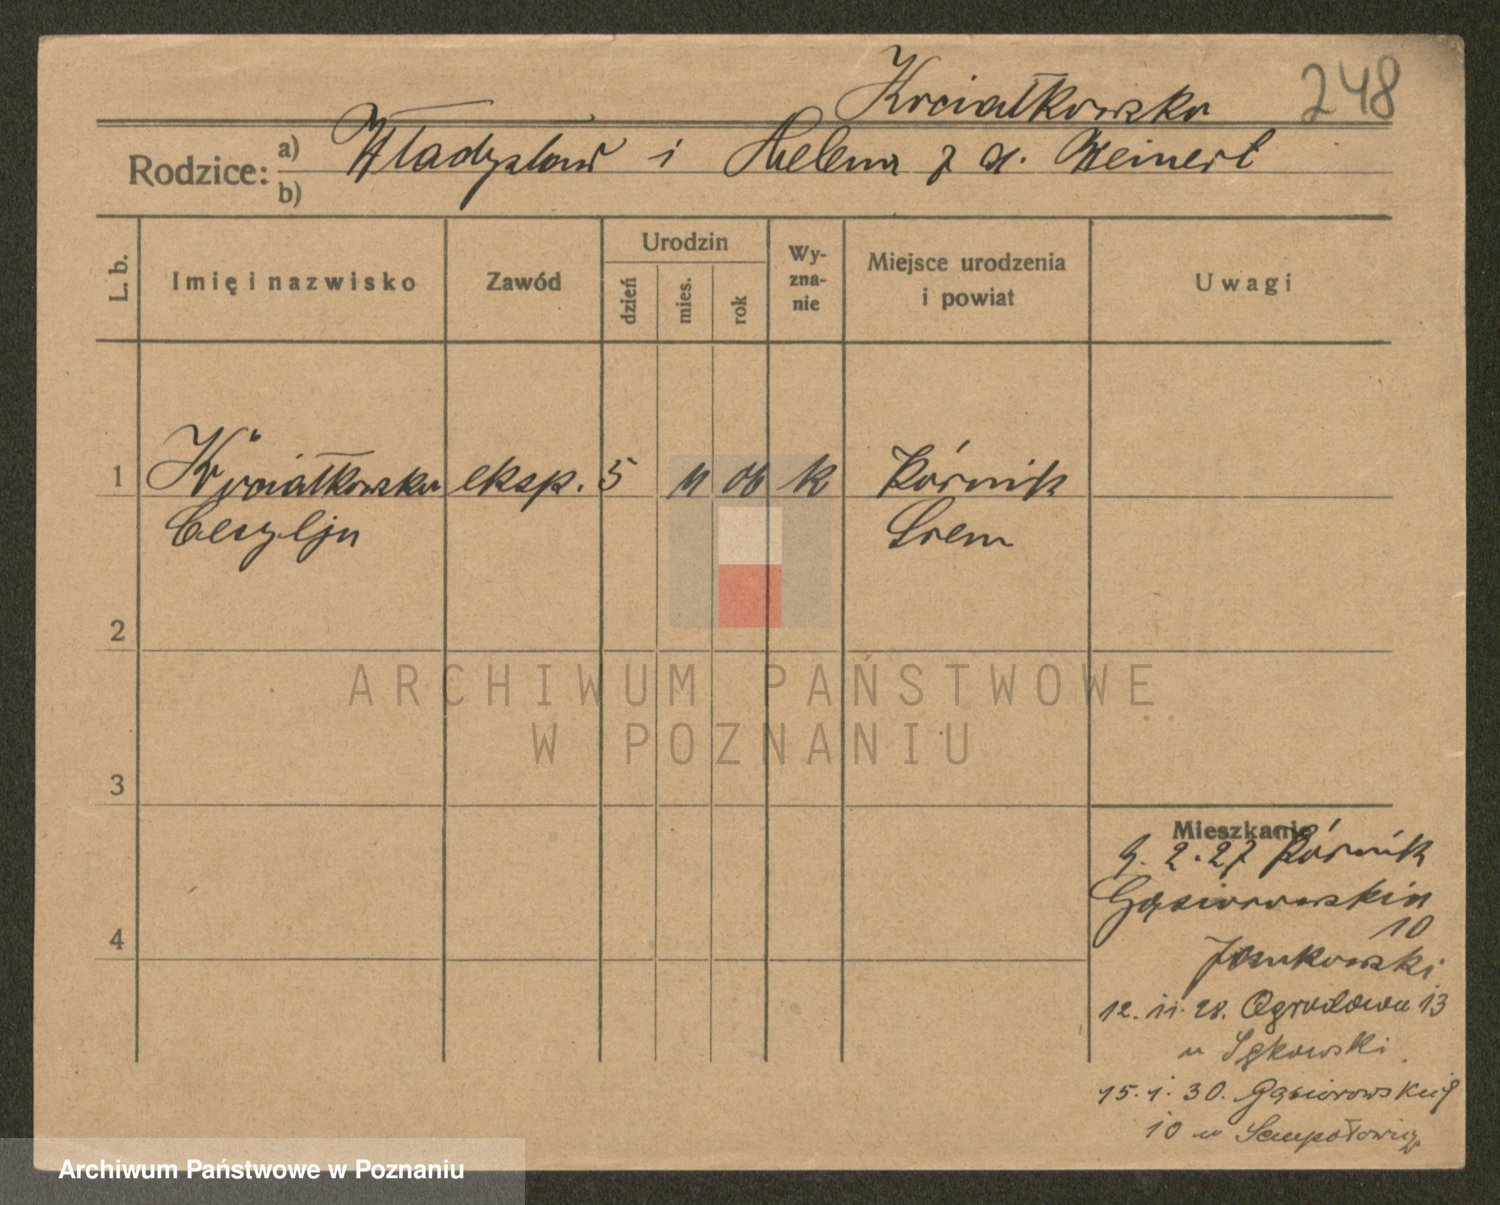 Kociałkowska 248
Rodzice: a) Władysław i Helena z d. Weinert
b)
L. b. Imię i nazwisko Zawód Urodzin dzień mies. rok Wyznanie Miejsce urodzenia i powiat Uwagi
1 Kociałkowska eksp. 5 11 06 k Kórnik
Cecylja Śrem
2
3
4
Mieszkanie
9. 2. 27 Kórnik
Gąsiorowskich
10
Jankowski
12. 11. 28. Ogrodowa 13
u
15. 1. 30. Gąsiorowskich
10 u
ARCHIWUM PAŃSTWOWE
W POZNANIU
Archiwum Państwowe w Poznaniu